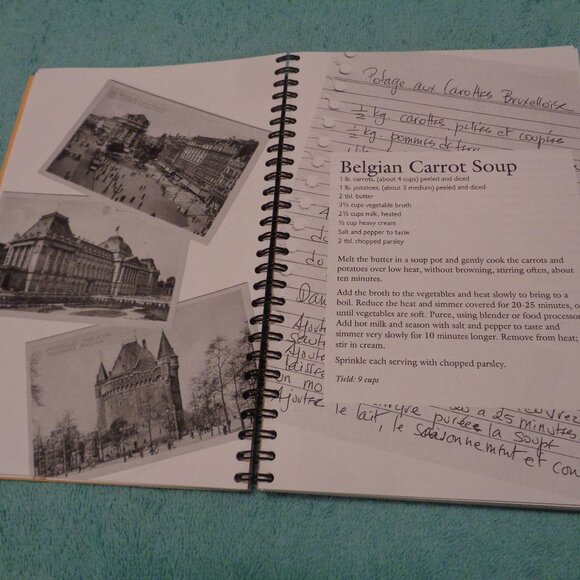 Potage aux Carottes Bruxelloise
½ kg. carottes, pelées et coupées
½ kg. pommes de terre
Belgian Carrot Soup
1 lb. carrots, (about 4 cups) peeled and diced
1 lb. potatoes, (about 3 medium) peeled and diced
2 tbl. butter
3½ cups vegetable broth
2½ cups milk, heated
½ cup heavy cream
Salt and pepper to taste
2 tbl. chopped parsley
Melt the butter in a soup pot and gently cook the carrots and
potatoes over low heat, without browning, stirring often, about
ten minutes.
Add the broth to the vegetables and heat slowly to bring to a
boil. Reduce the heat and simmer covered for 20-25 minutes, o
until vegetables are soft. Puree, using blender or food processor
Add hot milk and season with salt and pepper to taste and
simmer very slowly for 10 minutes longer. Remove from heat;
stir in cream.
Sprinkle each serving with chopped parsley.
Yield: 9 cups
Ajoute
Ajoute
laisse
un mo
Ajouter
a 25 minutes
purée la soupe
le lait, le saisonnement et cou